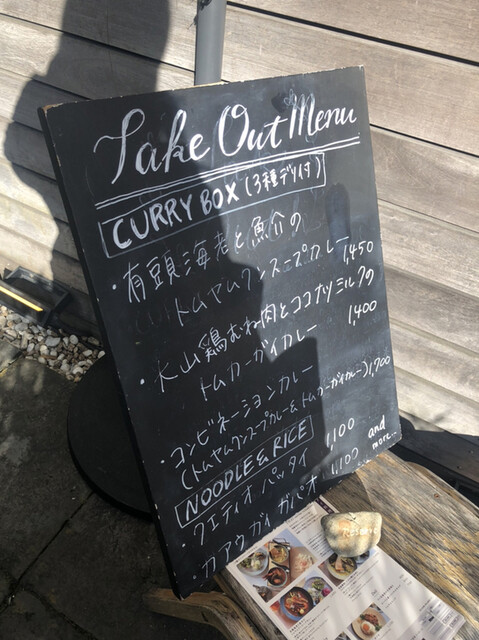 Take Out Menu
CURRY BOX (3種デリ付)
・有頭海老と魚介の
トムヤムクンスープカレー 1,450
・大山鶏むね肉とココナツミルクの
トムカーガイカレー 1,400
・コンビネーションカレー
(トムヤムクンスープカレー&トムカーガイカレー) 1,700
NOODLE & RICE
・クエティオ パッタイ 1,100 and
・カアウ ガイ ガパオ 1,100 more...